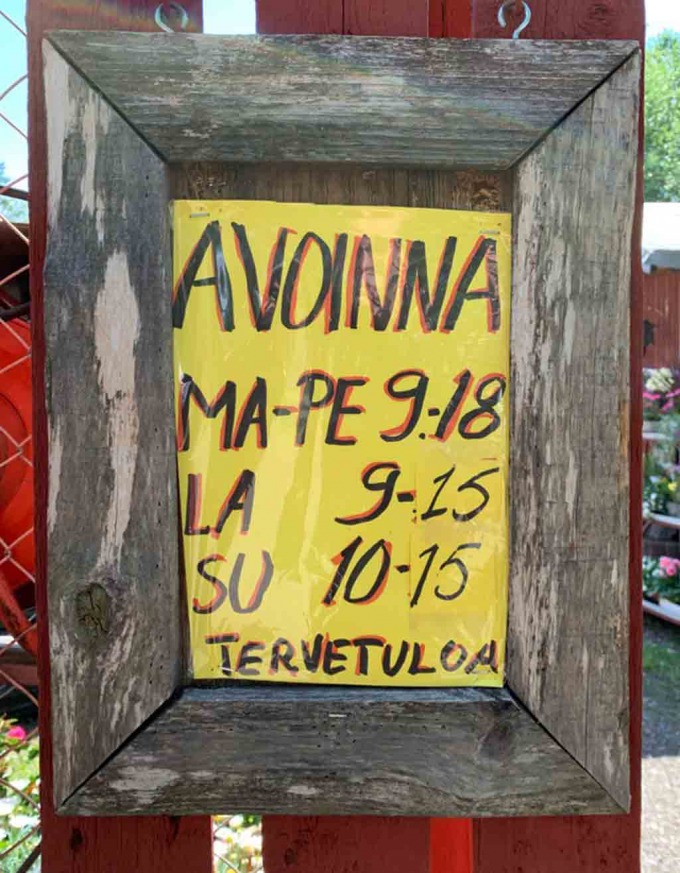 AVOINNA
MA-PE 9-18
LA 9-15
SU 10-15
TERVETULOA